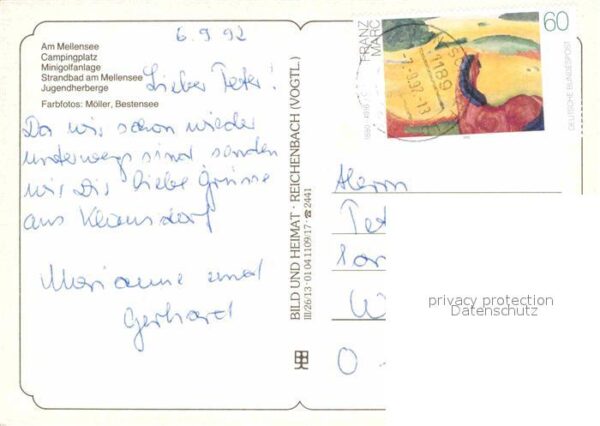 6.9.92
Am Mellensee
Campingplatz
Minigolfanlage
Strandbad am Mellensee
Jugendherberge
Farbfotos: Möller, Bestensee
Lieber Peter!
Da wir schon wieder
unterwegs sind senden
wir Dir liebe Grüsse
aus Klausdorf
Marianne und
Gerhard
BILD UND HEIMAT · REICHENBACH (VOGTL.)
III/26/13 · 01 04 11 09/17 · ☎ 2441
FRANZ
MARC
1880-1916
60
DEUTSCHE BUNDESPOST
1189
-7.-9.92-13
Herrn
Pet
W
O-
privacy protection
Datenschutz